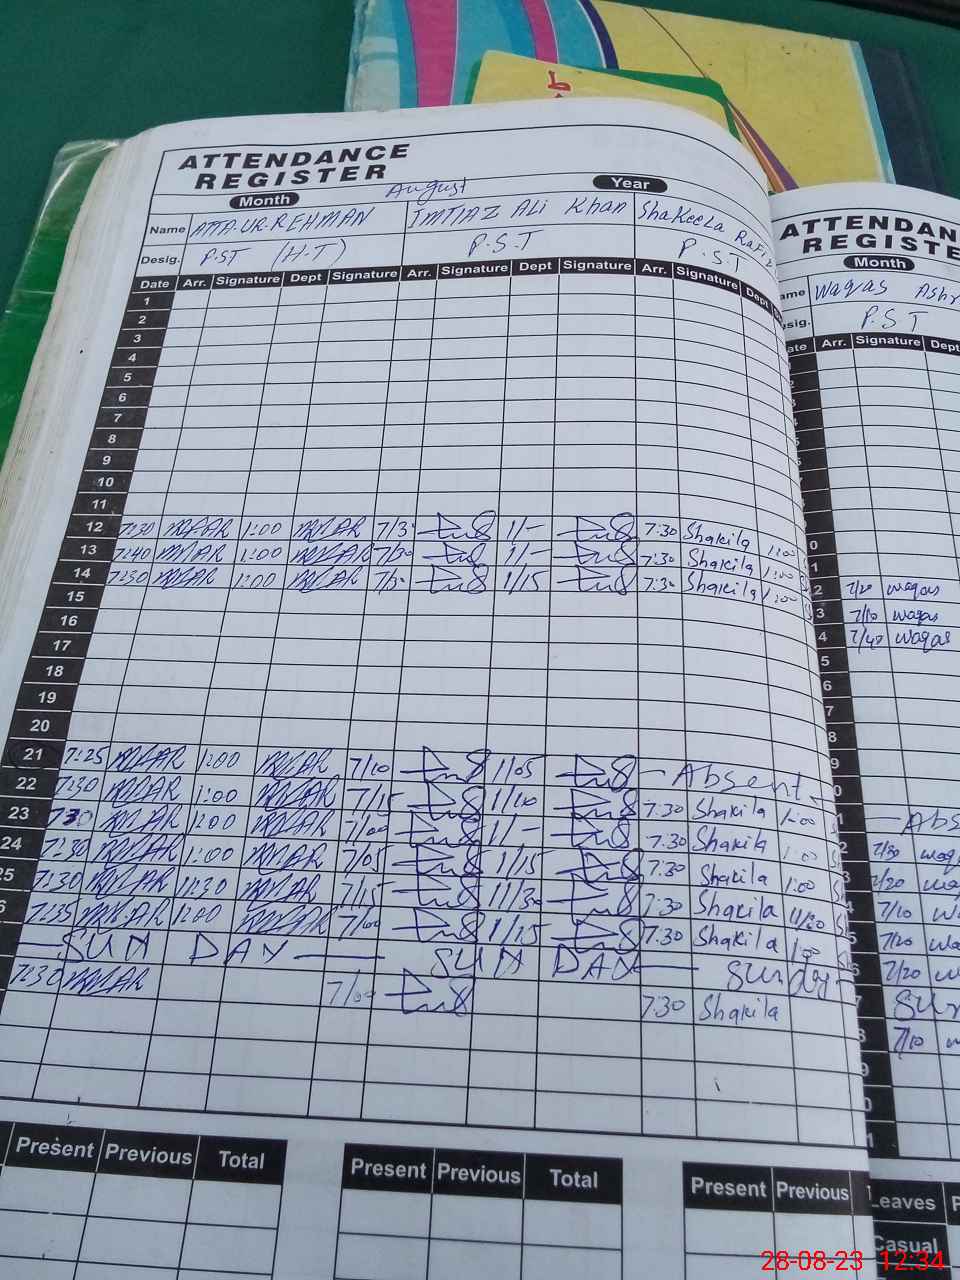 ط
ATTENDANCE
REGISTER
Month August Year
Name ATTA.UR.REHMAN IMTIAZ ALi Khan ShaKeela
Desig. P.ST (H.T) P.S.T P.S.T
Date Arr. Signature Dept Signature Arr. Signature Dept Signature Arr. Signature Dept
1
2
3
4
5
6
7
8
9
10
11
12 7:30 1:00 7/3 1/- 7:30 Shakila 1:00
13 7:40 1:00 7/30 1/- 7:30 Shakila 1:00
14 7:30 1:00 1/15 7:30 Shakila 1:00
15
16
17
18
19
20
21 7:25 1:00 7/10 1/05 - Absent
22 7:30 1:00 7/15 1/10 7:30 Shakila 1:00
23 730 1:00 7/00 1/- 7:30 Shakila 1:00
24 7:30 1:00 7/05 1/15 7:30 Shakila 1:00
25 7:30 11:30 7/15 11/30 7:30 Shakila 11/30
6 7:35 1:00 7/00 1/15 7:30 Shakila 1:00
SUN DAY SUN DAY Sunday
7:30 7/00 7:30 Shakila
Present Previous Total Present Previous Total Present Previous
ATTENDANCE
REGISTE
Month
ame Waqas Ashr
esig. P.S.T
ate Arr. Signature Dept
0
1
2 7/20 waqas
3 7/10 waqas
4 7/40 waqas
5
6
7
8
9
0
1 - Abs
2 7/30
3 7/20
4 7/10
5 7/20
6 7/20
7 Sun
8 7/10
9
0
1
Leaves
Casual
28-08-23 12:34